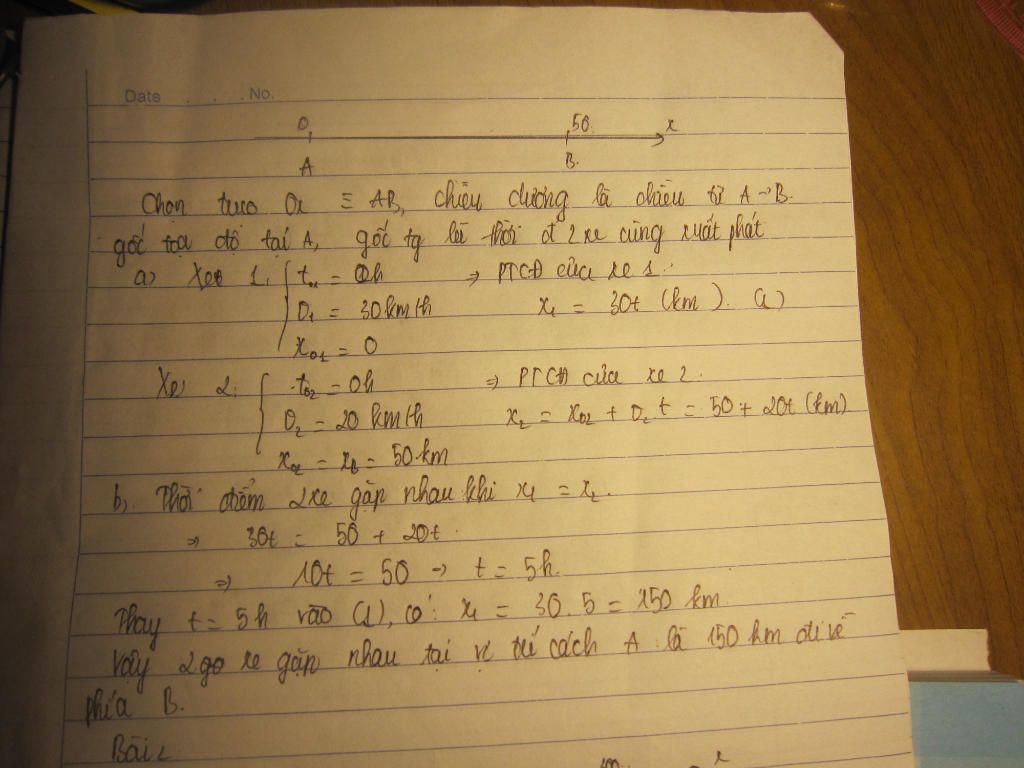 Date . . . No.
0 50 x
A B.
Chọn trục Ox ≡ AB, chiều dương là chiều từ A → B.
gốc tọa độ tại A, gốc tg là thời đ 2 xe cùng xuất phát
a) Xe 1: { t₀₁ = 0h ⇒ PTCĐ của xe 1:
v₁ = 30 km/h x₁ = 30t (km). (1)
x₀₁ = 0
Xe 2: { t₀₂ = 0h ⇒ PTCĐ của xe 2.
v₂ = 20 km/h x₂ = x₀₂ + v₂ t = 50 + 20t (km)
x₀₂ = x_B = 50 km
b). Thời điểm 2 xe gặp nhau khi x₁ = x₂.
⇒ 30t = 50 + 20t.
⇒ 10t = 50 → t = 5h.
Thay t = 5h vào (1), có: x₁ = 30.5 = 150 km.
Vậy 2 xe gặp nhau tại vị trí cách A là 150 km đi về
phía B.
Bài 2
x